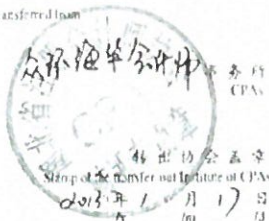 ansferred from
众环海华会计师事务所
CPAs
转出协会盖章
Stamp of the transfer-out Institute of CPAs
2015年1月17日
年 月 日